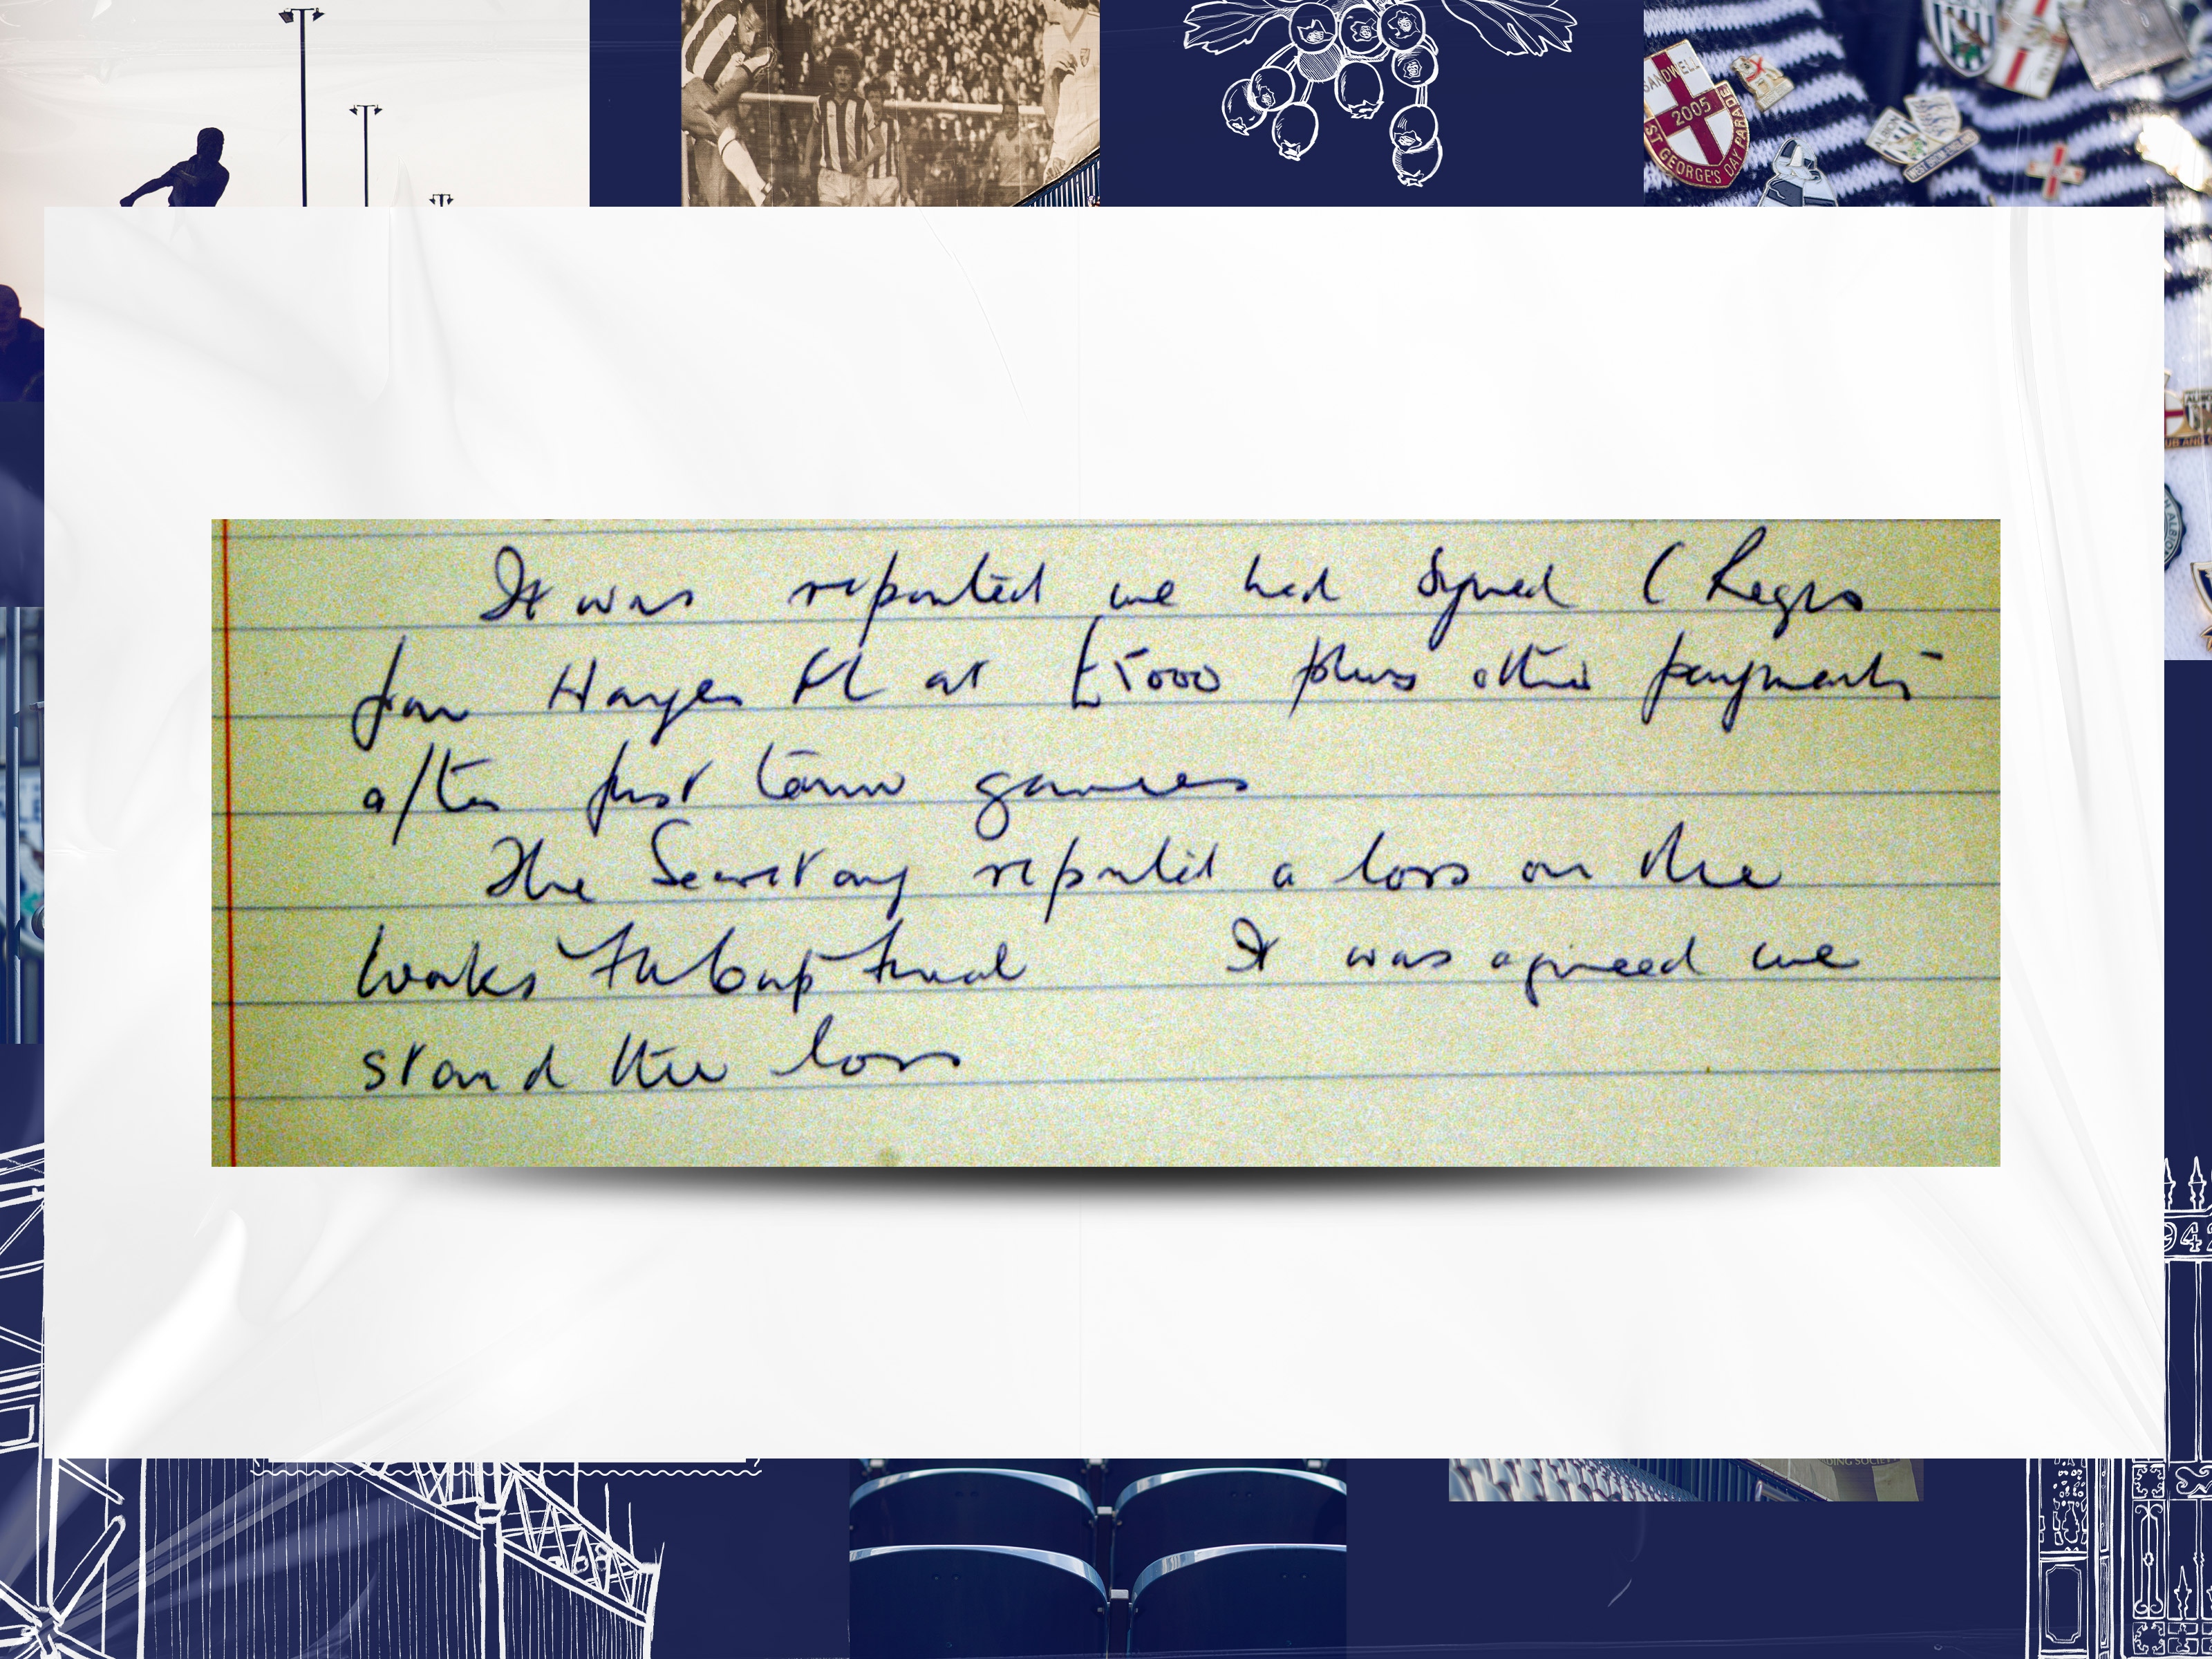 SANDWELL
2005
ST GEORGE'S DAY PARADE
It was reported we had signed C Regis
from Hayes FC at £5000 plus other payments
after first team games
The Secretary reported a loss on the
works cup final It was agreed we
stand the loss
DING SOCIE